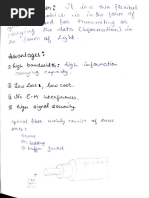 : it is a thin flexible
which is in the form of
used for transmitting or
carrying the data (information) in
form of Light.
Advantages:
① high bandwidth: high information
carrying capacity
② Low Loss, Low cost.
③ No E.M interferences.
④ high signal security.
optical fiber mainly consist of
cladding
③ buffer jacket